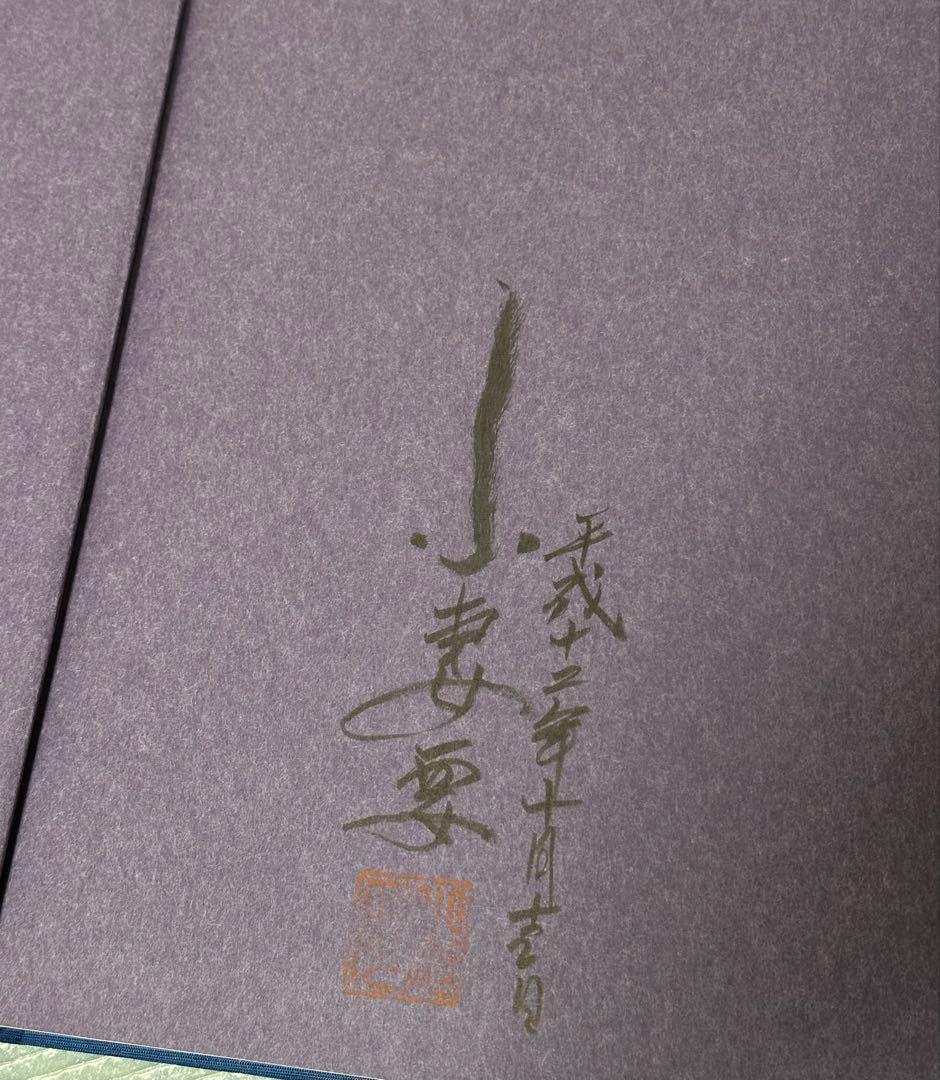 平成十二年十月壱日
小妻要